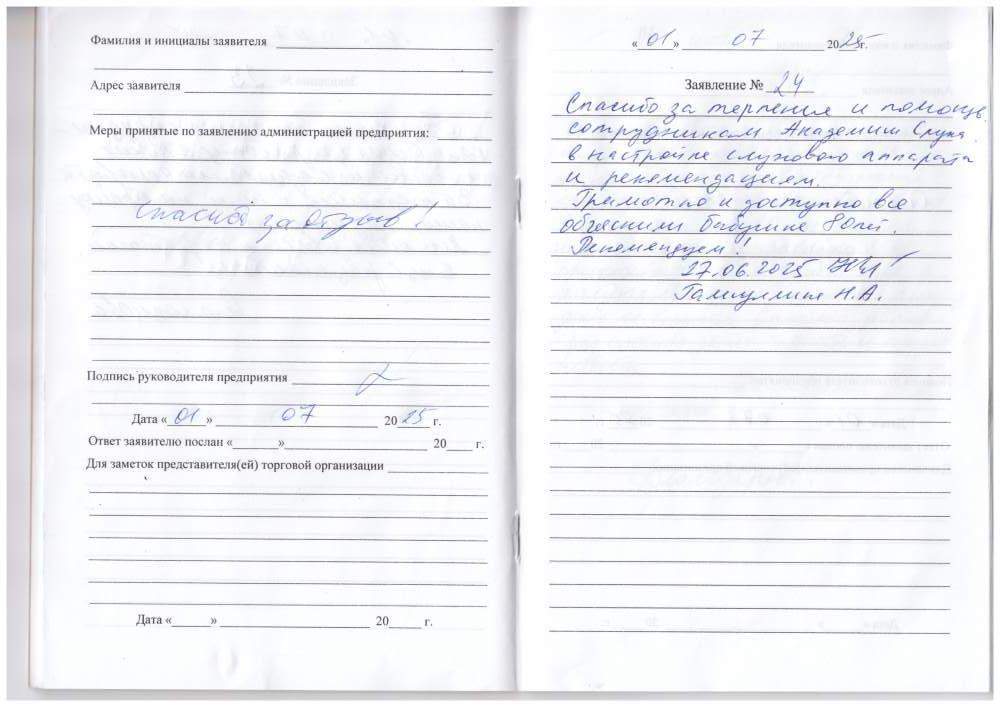 Фамилия и инициалы заявителя
Адрес заявителя
Меры принятые по заявлению администрацией предприятия:
Спасибо за отзыв!
Подпись руководителя предприятия
Дата «01» 07 2025 г.
Ответ заявителю послан «» 20 г.
Для заметок представителя(ей) торговой организации
Дата «» 20 г.
«01» 07 2025г.
Заявление № 24
Спасибо за терпение и помощь
сотрудникам Академии Слуха
в настройке слухового аппарата
и рекомендациям.
Грамотно и доступно все
объяснили Бабушке 80лет.
Рекомендуем!
27.06.2025
Н.А.